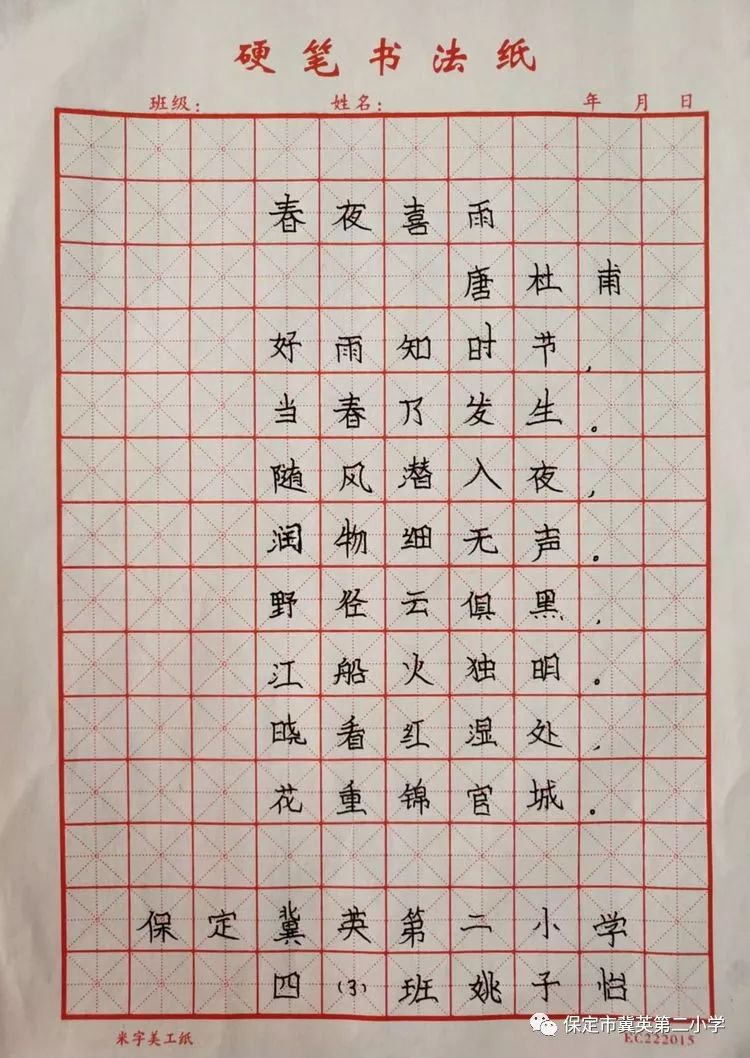 硬笔书法纸
班级： 姓名： 年 月 日
春夜喜雨
唐杜甫
好雨知时节，
当春乃发生。
随风潜入夜，
润物细无声。
野径云俱黑，
江船火独明。
晓看红湿处，
花重锦官城。
保定冀英第二小学
四（3）班姚子怡
保定市冀英第二小学
米字美工纸 EC222015